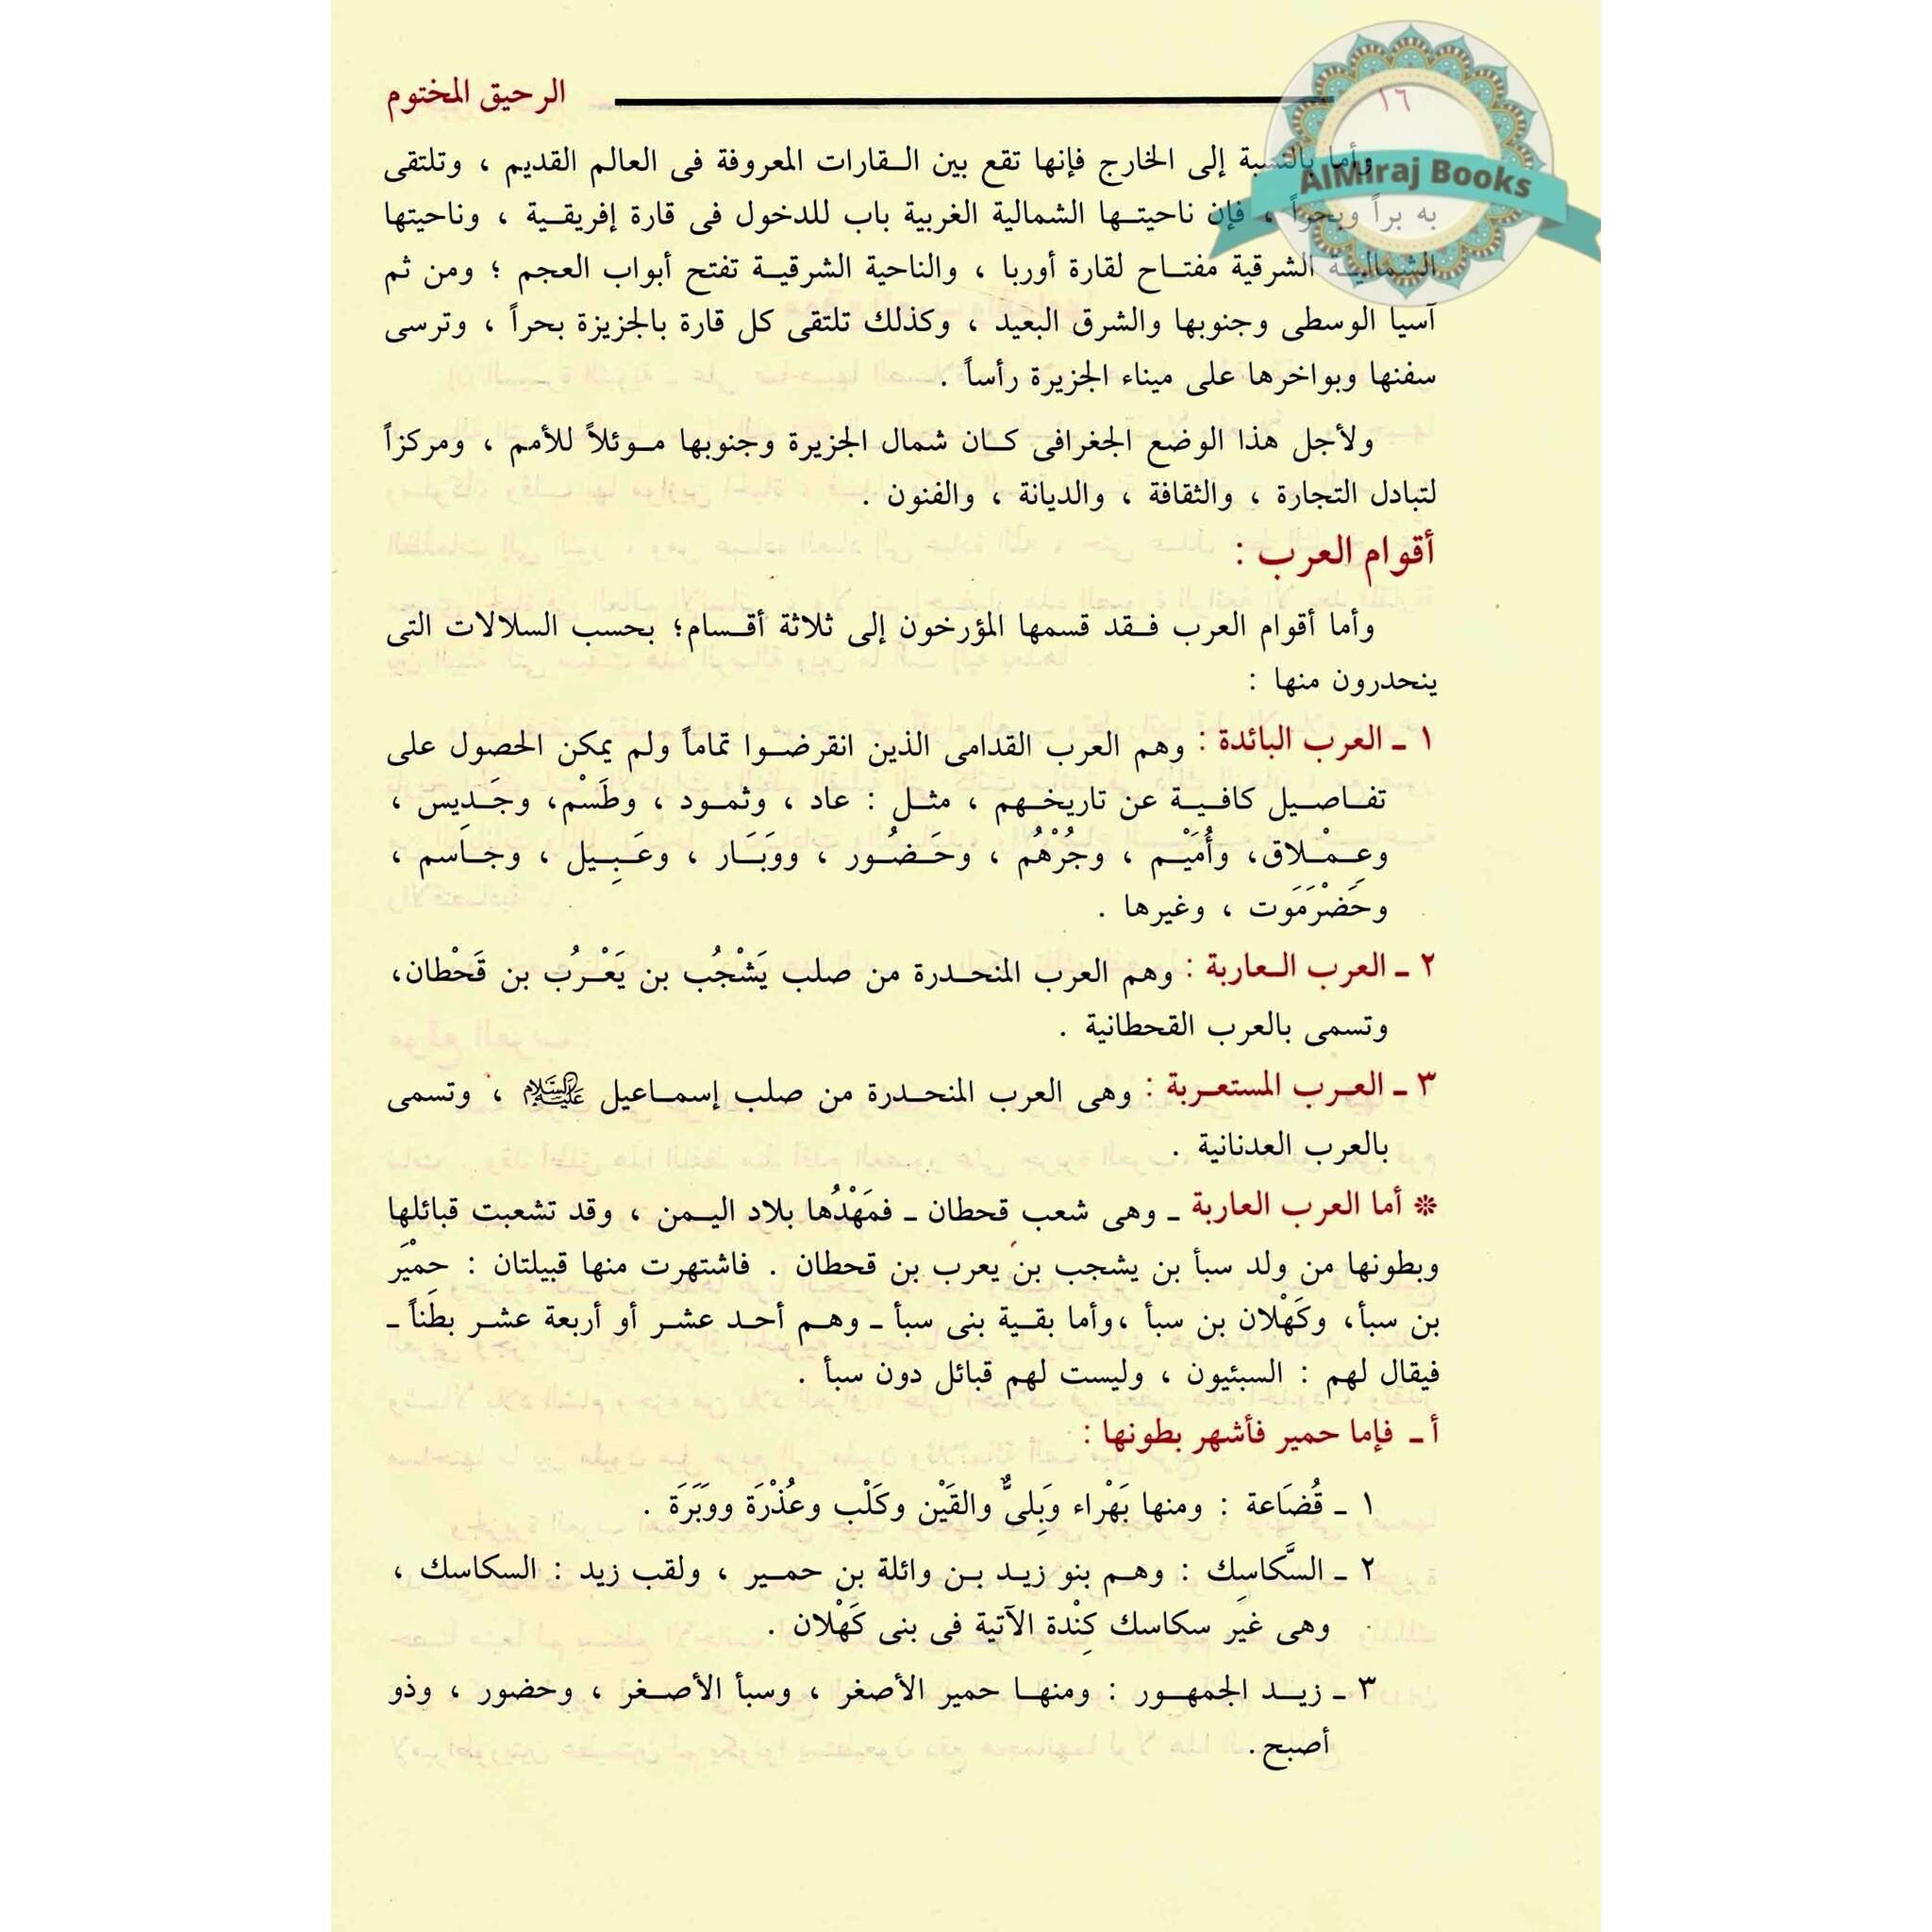 ١٦ الرحيق المختوم
AlMiraj Books
وأما بالنسبة إلى الخارج فإنها تقع بين القارات المعروفة فى العالم القديم ، وتلتقى
به براً وبحراً ، فإن ناحيتها الشمالية الغربية باب للدخول فى قارة إفريقية ، وناحيتها
الشمالية الشرقية مفتاح لقارة أوربا ، والناحية الشرقية تفتح أبواب العجم ؛ ومن ثم
آسيا الوسطى وجنوبها والشرق البعيد ، وكذلك تلتقى كل قارة بالجزيزة بحراً ، وترسى
سفنها وبواخرها على ميناء الجزيرة رأساً .
ولأجل هذا الوضع الجغرافى كان شمال الجزيرة وجنوبها موئلاً للأمم ، ومركزاً
لتبادل التجارة ، والثقافة ، والديانة ، والفنون .
أقوام العرب :
وأما أقوام العرب فقد قسمها المؤرخون إلى ثلاثة أقسام؛ بحسب السلالات التى
ينحدرون منها :
١ ـ العرب البائدة : وهم العرب القدامى الذين انقرضوا تماماً ولم يمكن الحصول على
تفاصيل كافية عن تاريخهم ، مثل : عاد ، وثمود ، وطَسْم، وجَدِيس ،
وعِمْلاق، وأُمَيْم ، وجُرْهُم ، وحَضُور ، ووَبَار ، وعَبِيل ، وجَاسم ،
وحَضْرَمَوت ، وغيرها .
٢ ـ العرب العاربة : وهم العرب المنحدرة من صلب يَشْجُب بن يَعْرُب بن قَحْطان،
وتسمى بالعرب القحطانية .
٣ ـ العرب المستعربة : وهى العرب المنحدرة من صلب إسماعيل عليه السلام ، وتسمى
بالعرب العدنانية .
❊ أما العرب العاربة ـ وهى شعب قحطان ـ فمَهْدُها بلاد اليمن ، وقد تشعبت قبائلها
وبطونها من ولد سبأ بن يشجب بن يعرب بن قحطان . فاشتهرت منها قبيلتان : حِمْيَر
بن سبأ، وكَهْلان بن سبأ ،وأما بقية بنى سبأ ـ وهم أحد عشر أو أربعة عشر بطناً ـ
فيقال لهم : السبئيون ، وليست لهم قبائل دون سبأ .
أ ـ فإما حمير فأشهر بطونها :
١ ـ قُضَاعة : ومنها بَهْراء وَبِلىٌّ والقَيْن وكَلْب وعُذْرَة ووَبَرَة .
٢ ـ السَّكاسِك : وهم بنو زيد بن وائلة بن حمير ، ولقب زيد : السكاسك ،
وهى غير سكاسك كِنْدة الآتية فى بنى كَهْلان .
٣ ـ زيد الجمهور : ومنها حمير الأصغر ، وسبأ الأصغر ، وحضور ، وذو
أصبح.